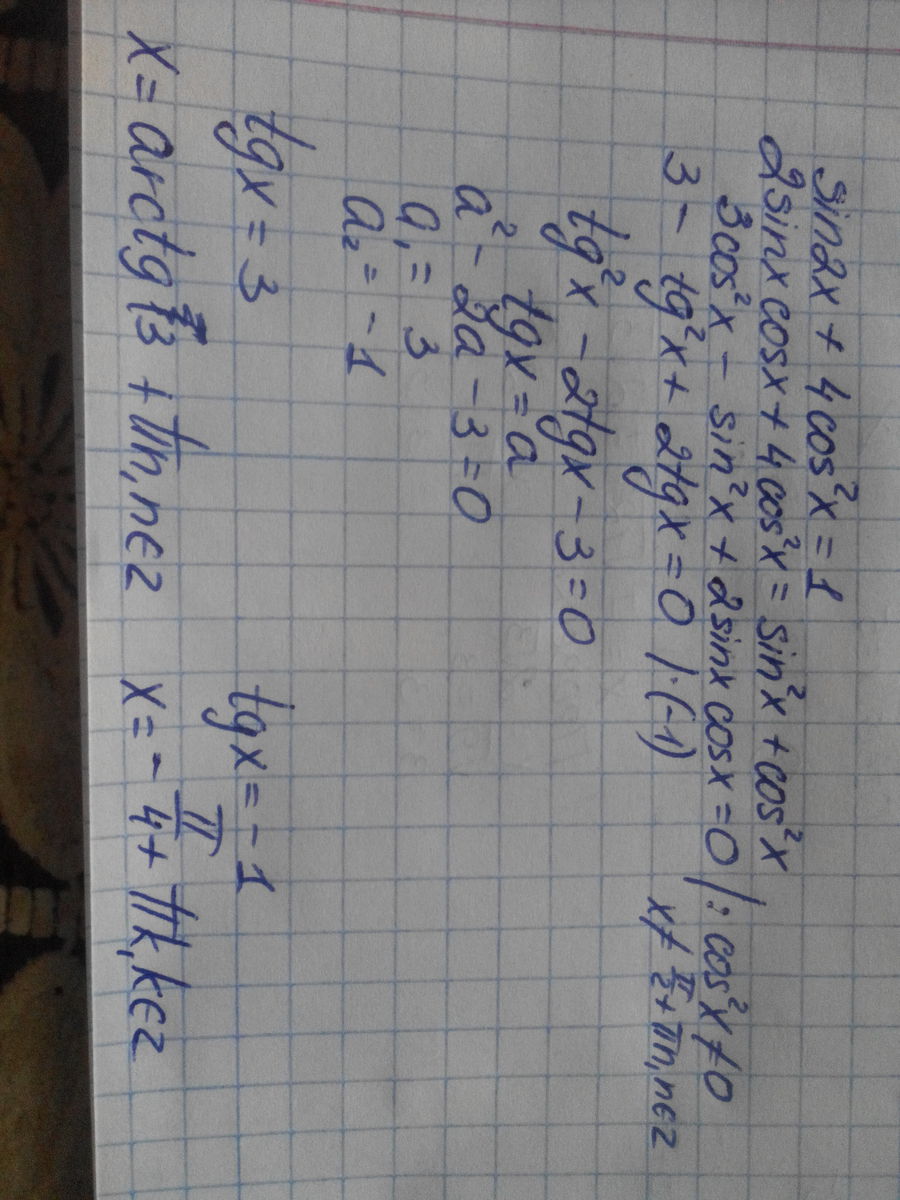 sin2x + 4cos²x = 1
2sinx cosx + 4cos²x = sin²x + cos²x
3cos²x - sin²x + 2sinx cosx = 0 |: cos²x ≠ 0
3 - tg²x + 2tgx = 0 |·(-1) x ≠ π/2 + πn, n∈z
tg²x - 2tgx - 3 = 0
tgx = a
a² - 2a - 3 = 0
a₁ = 3
a₂ = -1
tgx = 3 tgx = -1
x = arctg 3 + πn, n∈z x = - π/4 + πk, k∈z